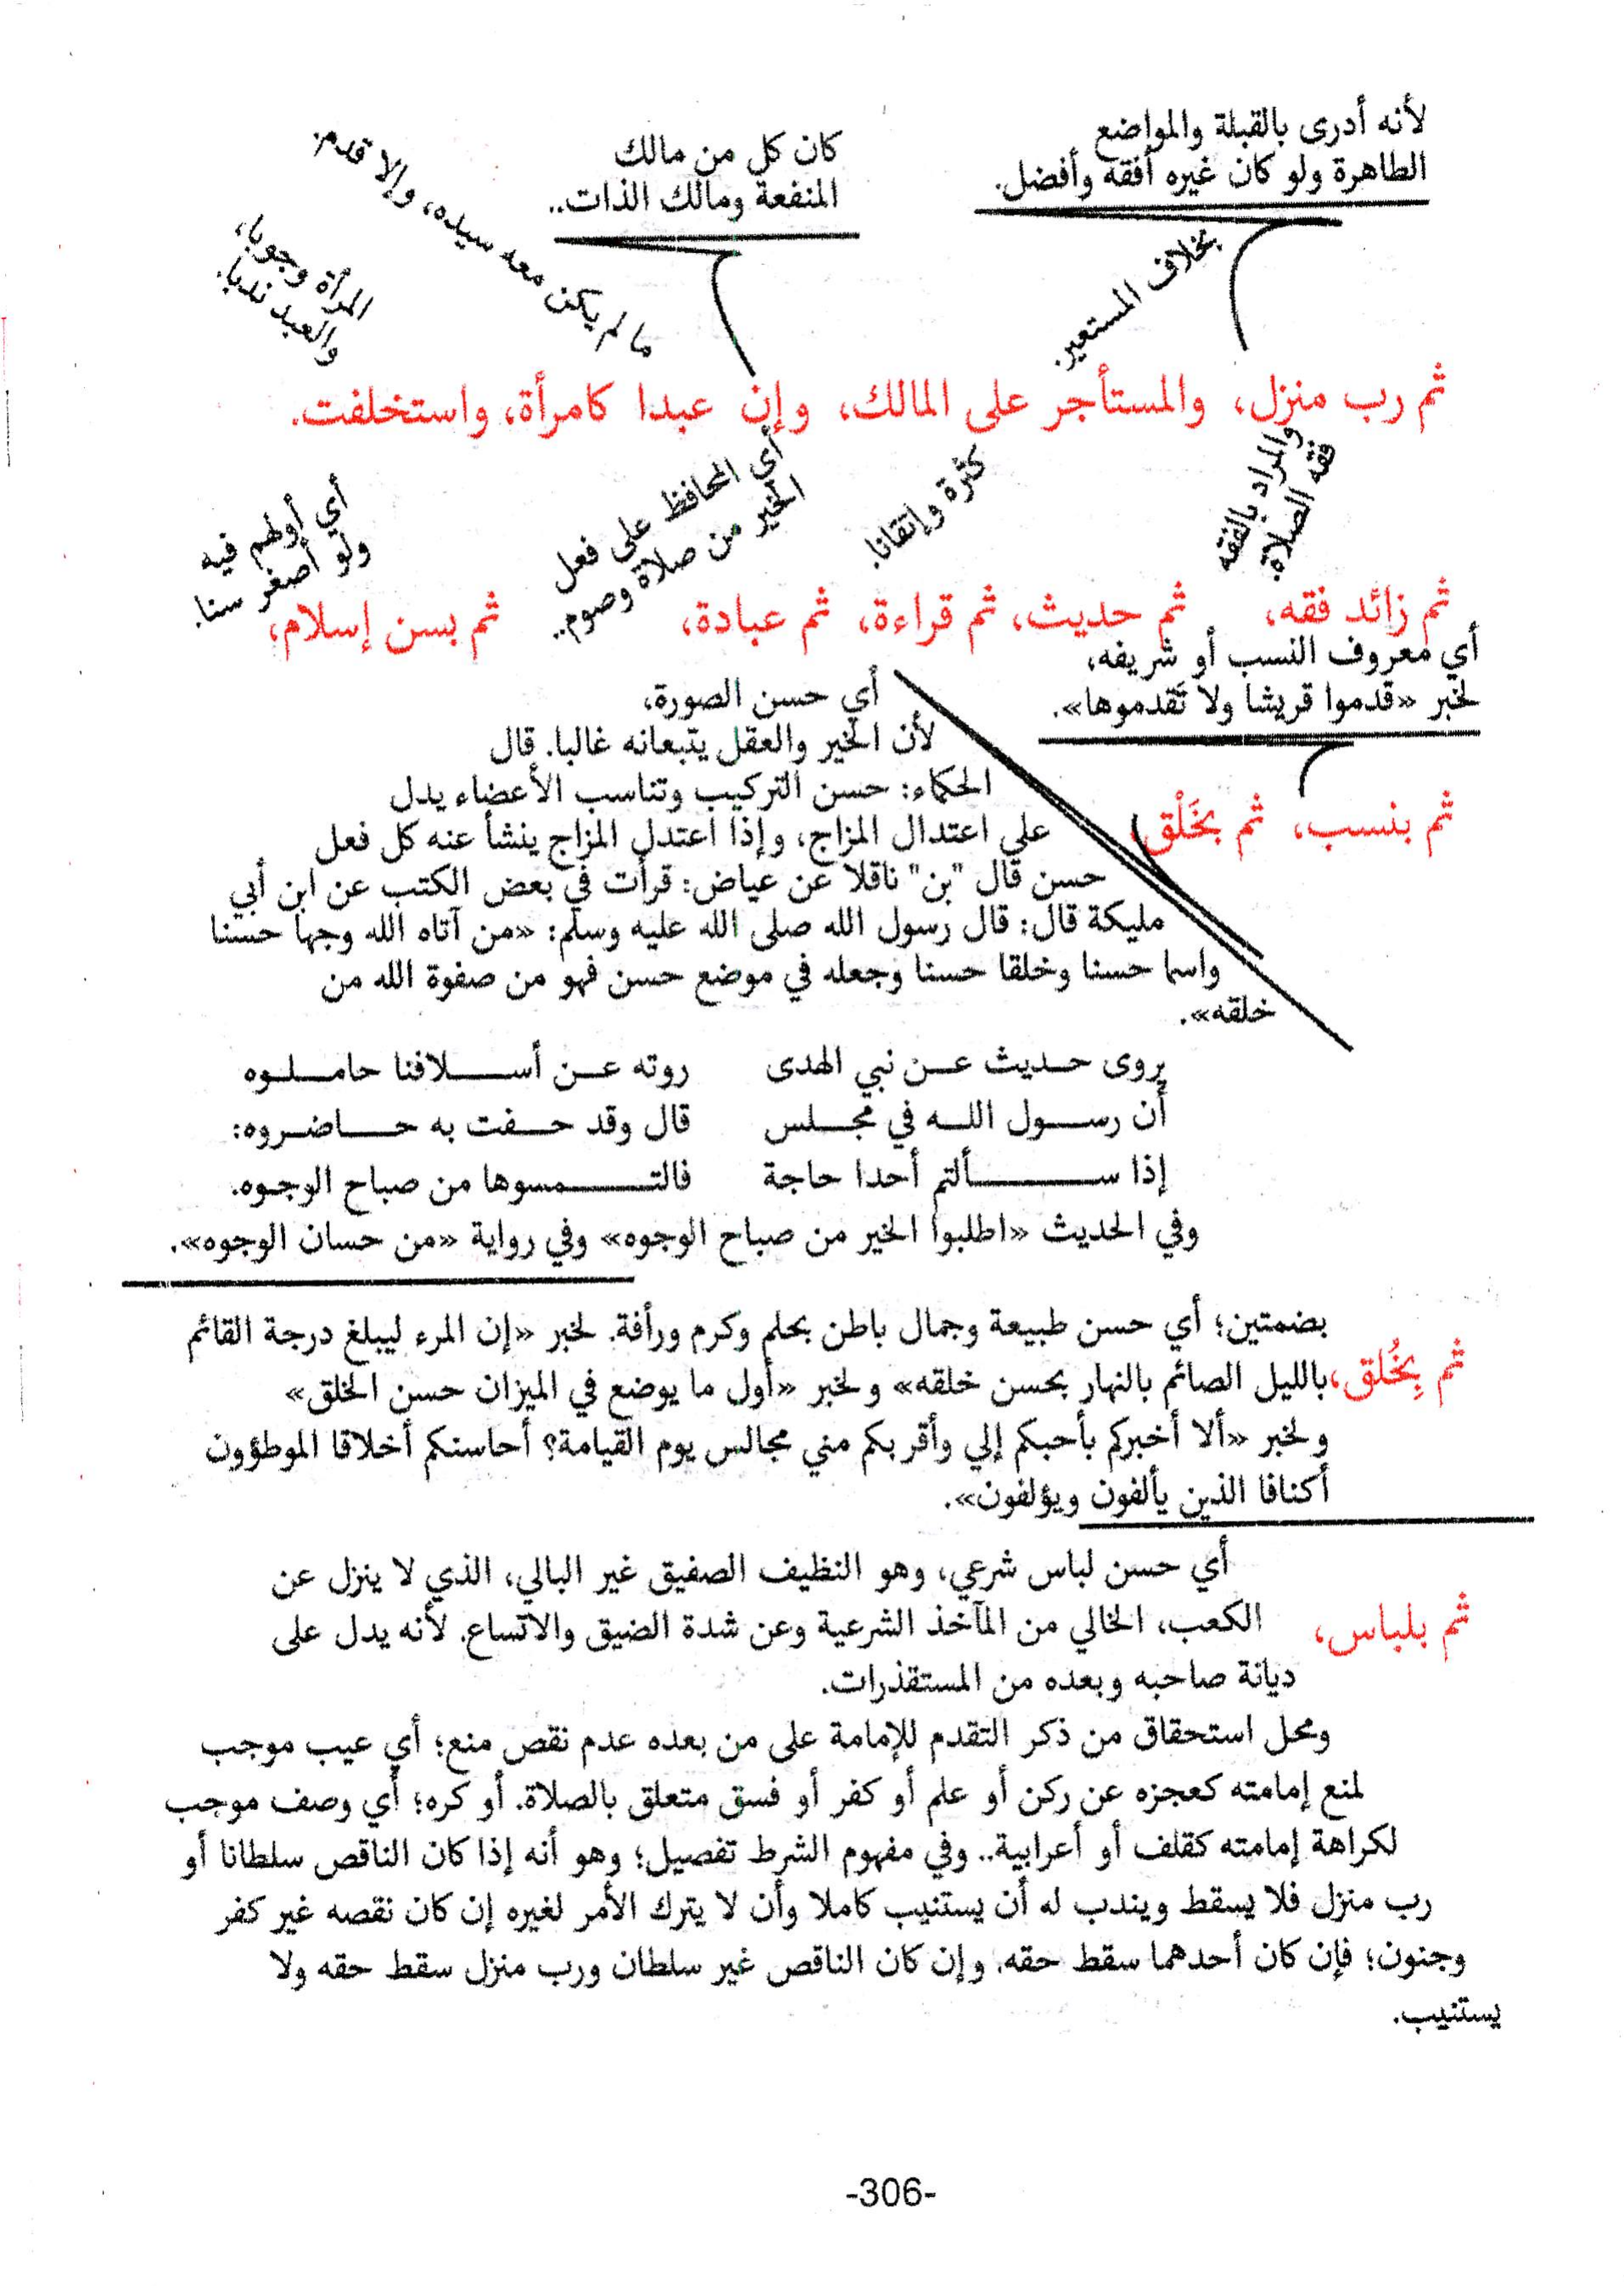 لأنه أدرى بالقبلة والمواضع
الطاهرة ولو كان غيره أفقه وأفضل.
بخلاف المستعير.
كان كل من مالك
المنفعة ومالك الذات..
ما لم يكن معه سيده، وإلا قدم.
المرأة وجوبا،
والعبد ندبا.
ثم رب منزل، والمستأجر على المالك، وإن عبدا كامرأة، واستخلفت.
والمراد بالفقه
فقه الصلاة.
كثرة وإتقانا.
أي المحافظ على فعل
الخير من صلاة وصوم..
أي أولهم فيه
ولو أصغر سنا.
ثم زائد فقه، ثم حديث، ثم قراءة، ثم عبادة، ثم بسن إسلام،
أي معروف النسب أو شريفه،
لخبر «قدموا قريشا ولا تَقدموها».
ثم بنسب، ثم بخَلْق،
أي حسن الصورة،
لأن الخير والعقل يتبعانه غالبا. قال
الحكماء: حسن التركيب وتناسب الأعضاء يدل
على اعتدال المزاج، وإذا اعتدل المزاج ينشأ عنه كل فعل
حسن قال "بن" ناقلا عن عياض: قرأت في بعض الكتب عن ابن أبي
مليكة قال: قال رسول الله صلى الله عليه وسلم: «من آتاه الله وجها حسنا
واسما حسنا وخلقا حسنا وجعله في موضع حسن فهو من صفوة الله من
خلقه».
يروى حديث عن نبي الهدى روته عن أسلافنا حاملوه
أن رسول الله في مجلس قال وقد حفت به حاضروه:
إذا سألتم أحدا حاجة فالتمسوها من صباح الوجوه.
وفي الحديث «اطلبوا الخير من صباح الوجوه» وفي رواية «من حسان الوجوه».
ثم بِخُلق،
بضمتين؛ أي حسن طبيعة وجمال باطن بحلم وكرم ورأفة. لخبر «إن المرء ليبلغ درجة القائم
بالليل الصائم بالنهار بحسن خلقه» ولخبر «أول ما يوضع في الميزان حسن الخلق»
ولخبر «ألا أخبركم بأحبكم إلي وأقربكم مني مجالس يوم القيامة؟ أحاسنكم أخلاقا الموطؤون
أكنافا الذين يألفون ويؤلفون».
ثم بلباس،
أي حسن لباس شرعي، وهو النظيف الصفيق غير البالي، الذي لا ينزل عن
الكعب، الخالي من المآخذ الشرعية وعن شدة الضيق والاتساع. لأنه يدل على
ديانة صاحبه وبعده من المستقذرات.
ومحل استحقاق من ذكر التقدم للإمامة على من بعده عدم نقص منع؛ أي عيب موجب
لمنع إمامته كعجزه عن ركن أو علم أو كفر أو فسق متعلق بالصلاة. أو كره؛ أي وصف موجب
لكراهة إمامته كقلف أو أعرابية.. وفي مفهوم الشرط تفصيل؛ وهو أنه إذا كان الناقص سلطانا أو
رب منزل فلا يسقط ويندب له أن يستنيب كاملا وأن لا يترك الأمر لغيره إن كان نقصه غير كفر
وجنون؛ فإن كان أحدهما سقط حقه. وإن كان الناقص غير سلطان ورب منزل سقط حقه ولا
يستنيب.
-306-